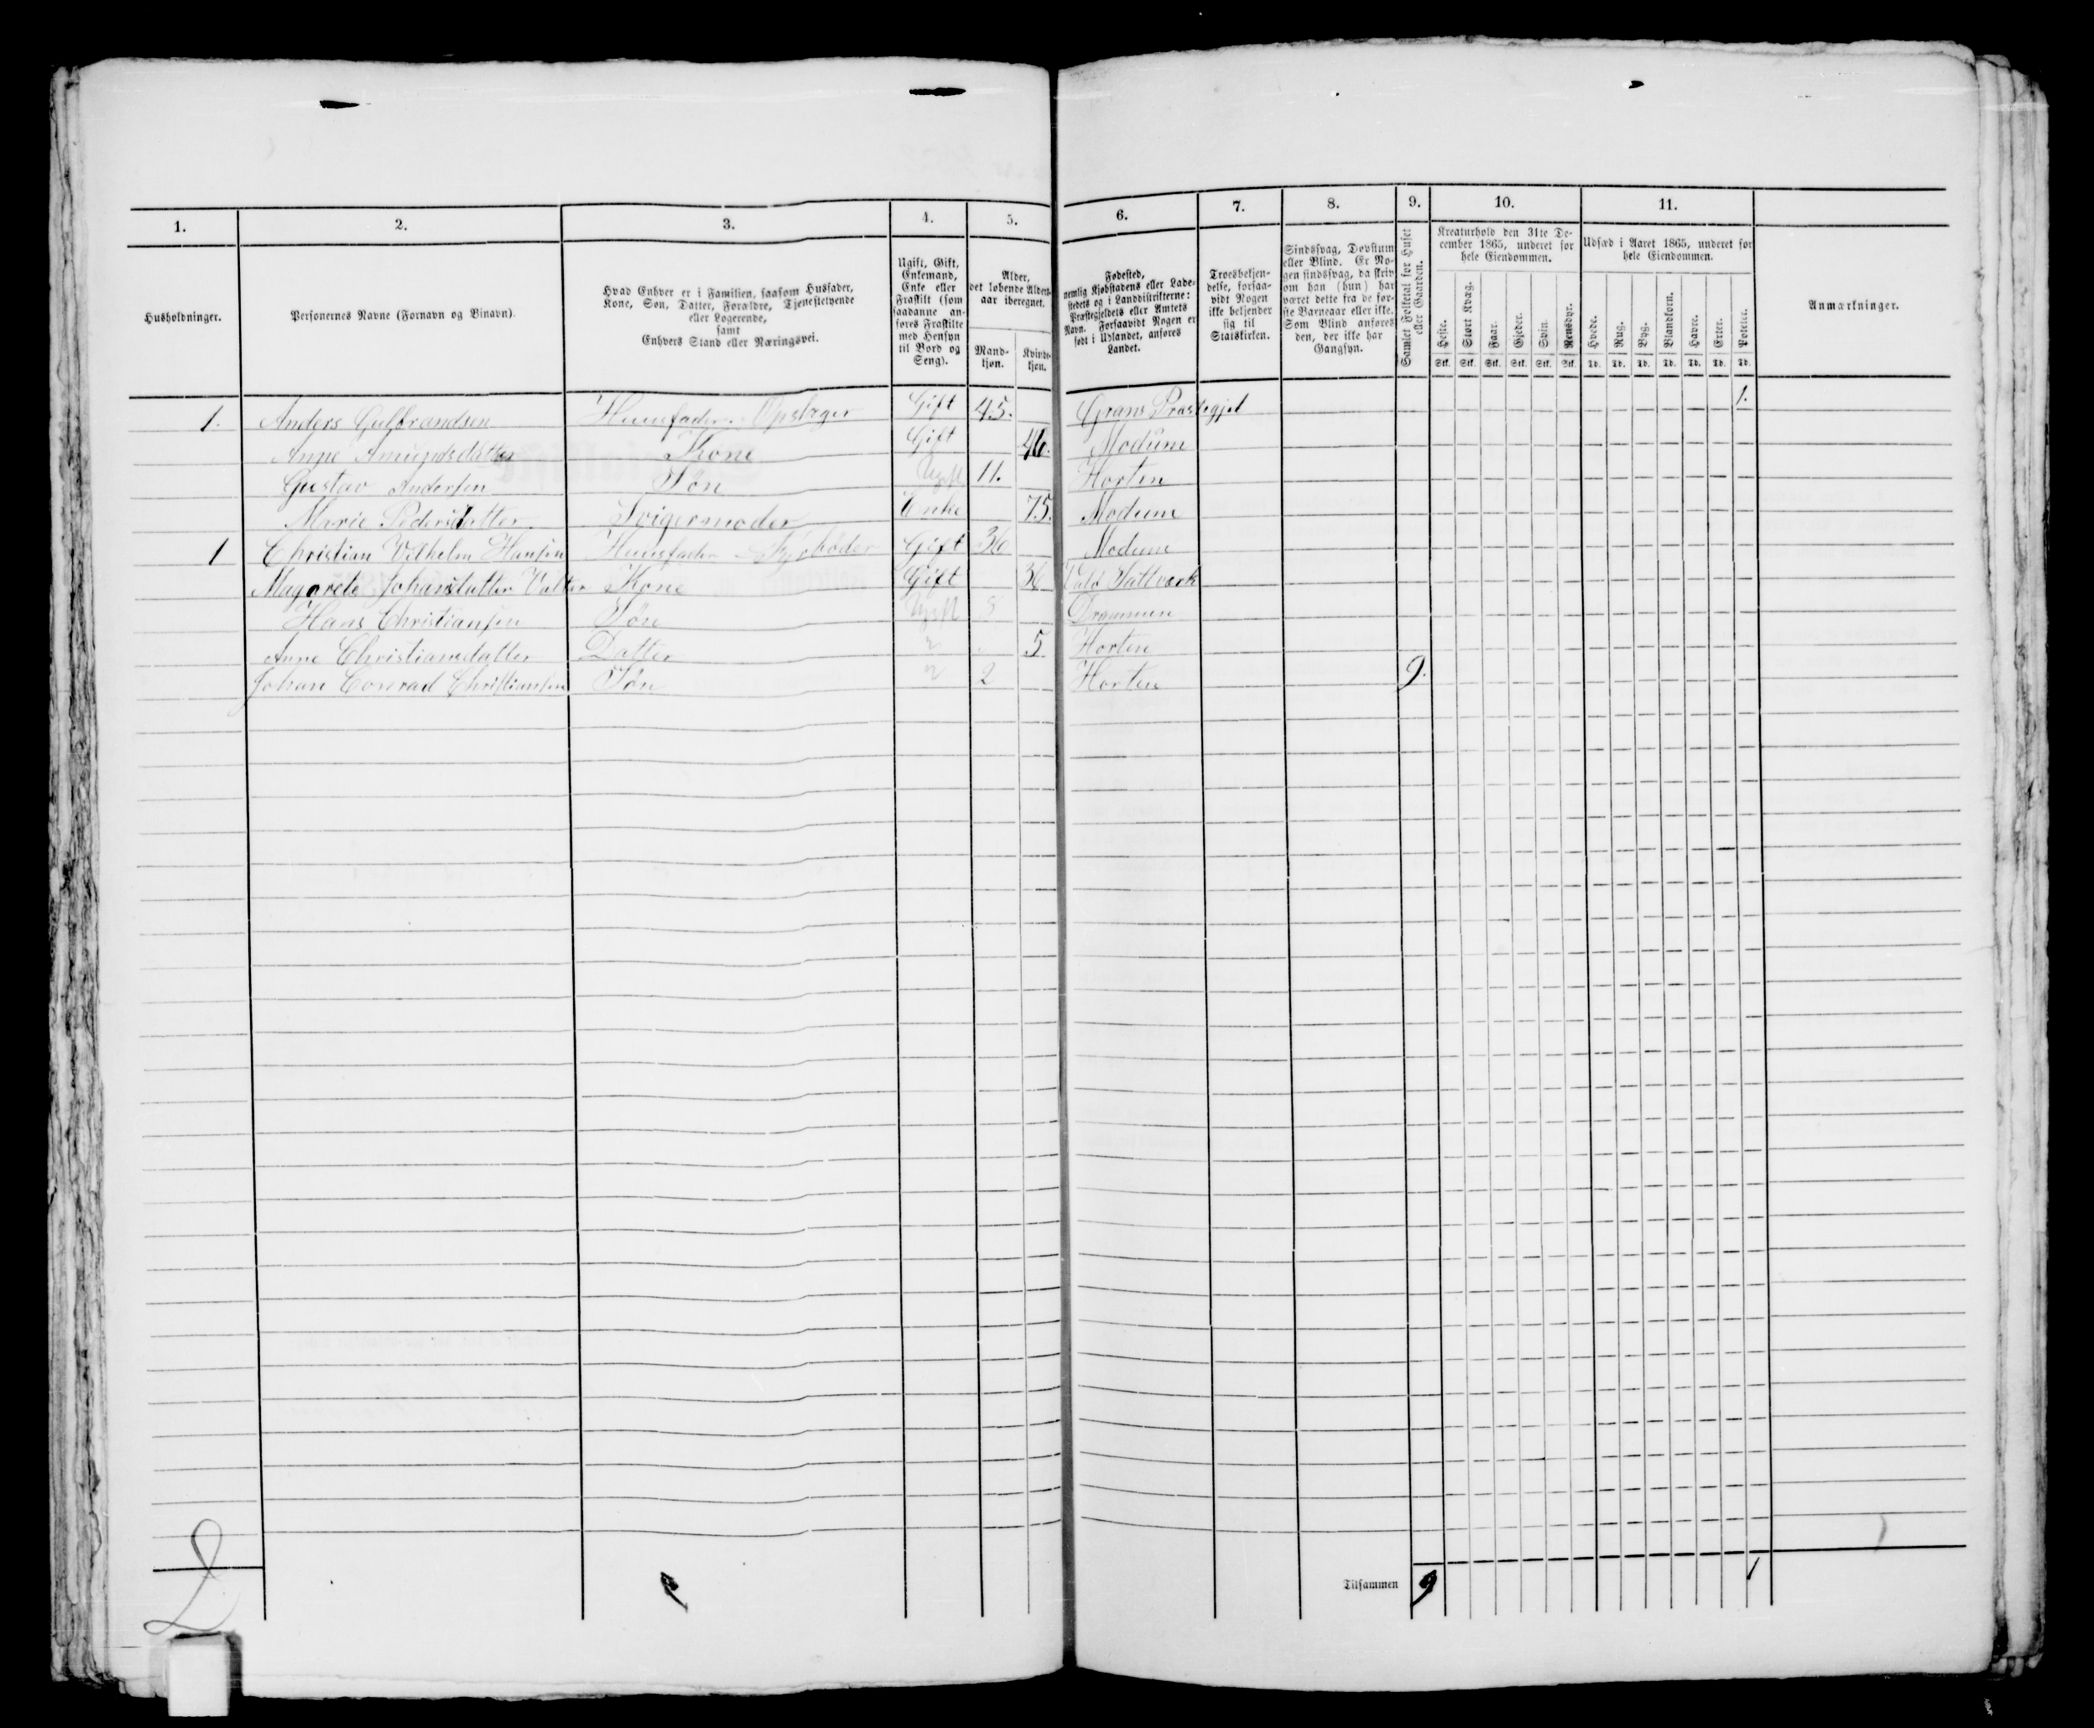 1. 2. 3. 4. 5. 6. 7. 8. 9. 10. 11.
Husholdninger.
Personernes Navne (Fornavn og Binavn).
Hvad Enhver er i Familien, saasom Husfader,
Kone, Søn, Datter, Forældre, Tjenestetyende
eller Logerende,
samt
Enhvers Stand eller Næringsvei.
Ugift, Gift,
Enkemand,
Enke eller
Fraskilt (som
saadanne an-
føres Fraskilte
med Hensyn
til Bord og
Seng).
Alder,
det løbende Alders-
aar iberegnet.
Mand-
kjøn.
Kvinde-
kjøn.
Fødested,
nemlig Kjøbstadens eller Lade-
stedets og i Landdistrikterne:
Præstegjeldets eller Amtets
Navn. Forsaavidt Nogen er
født i Udlandet, anføres
Landet.
Troesbekjen-
delse, forsaa-
vidt Nogen
ikke bekjender
sig til
Statskirken.
Sindssvag, Døvstum
eller Blind. Er No-
gen sindssvag, da skriv
om han (hun) har
været dette fra de før-
ste Barneaar eller ikke.
Som Blind anføres
den, der ikke har
Gangsyn.
Samlet Folketal for Huset
eller Gaarden.
Kreaturhold den 31te De-
cember 1865, underet for
hele Eiendommen.
Heste. Stort Kvæg. Faar. Gjeder. Svin. Rensdyr.
Stk. Stk. Stk. Stk. Stk. Stk.
Udsæd i Aaret 1865, underet for
hele Eiendommen.
Hvede. Rug. Byg. Blandkorn. Havre. Erter. Poteter.
Td. Td. Td. Td. Td. Td. Td.
Anmærkninger.
1. Anders Gulbrandsen Huusfader Opslager Gift 45. Grans Prastegjel 1.
Anne Amundsdatter Kone Gift 46. Modum
Gustav Andersen Søn Ugift 11. Horten
Marie Pedersdatter Svigermoder Enke 75. Modum
1 Christian Vilhelm Hansen Huusfader Gift 36 Modum
Magrete Johansdatter Kone Gift 36
Hans Christiansen Søn Ugift Drammen
Anne Christiansdatter Datter 5 Horten
Johan Conrad Christiansen Søn 2 Horten 9.
2
Tilsammen 9 1